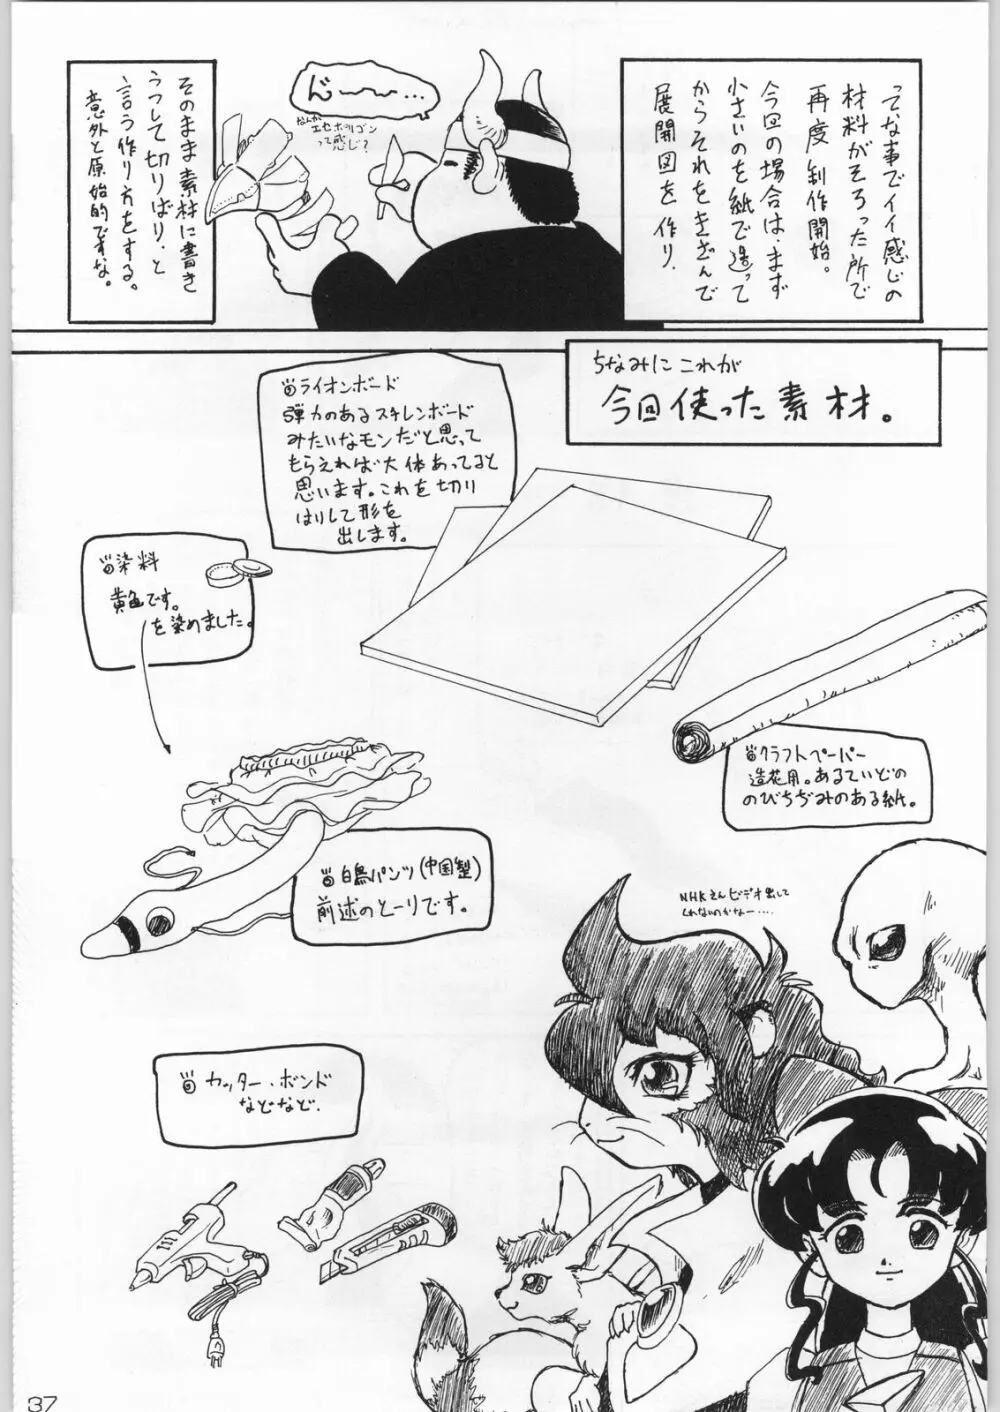 ってな事でイイ感じの
材料がそろった所で
再度制作開始。
今回の場合は、まず
小さいのを紙で造って
からそれをきざんで
展開図を作り、
ん〜〜…
なんか
エセポリゴン
って感じ?
そのまま素材に書き
うつして切りばり、と
言う作り方をする。
意外と原始的ですな。
ちなみにこれが
今回使った素材。
ライオンボード
弾力のあるスチレンボード
みたいなモンだと思って
もらえれば大体あってると
思います。これを切り
はりして形を
出します。
染料
黄色です。
を染めました。
クラフトペーパー
造花用。あるていどの
のびちぢみのある紙。
白鳥パンツ(中国製)
前述のとーりです。
NHKさんビデオ出して
くれないのかなー‥‥
カッター・ボンド
などなど、
37